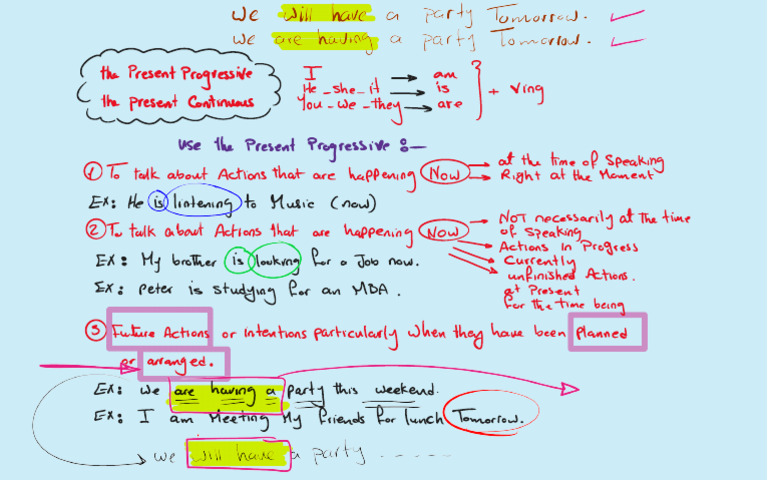 We will have a party Tomorrow.
We are having a party Tomorrow.
the Present Progressive
the present Continuous
I → am
He - she - it → is
You - we - they → are
+ Ving
Use the Present Progressive :-
① To talk about Actions that are happening Now
→ at the time of Speaking
→ Right at the Moment
Ex: He is listening to Music (now)
② To talk about Actions that are happening Now
→ NOT necessarily at the time of Speaking
→ Actions in Progress
→ Currently
→ unfinished Actions.
at Present
for the time being
Ex: My brother is looking for a Job now.
Ex: peter is studying for an MBA.
③ Future Actions or intentions particularly when they have been planned
or arranged.
Ex: we are having a party this weekend.
Ex: I am Meeting My friends for lunch Tomorrow.
we will have a party ------